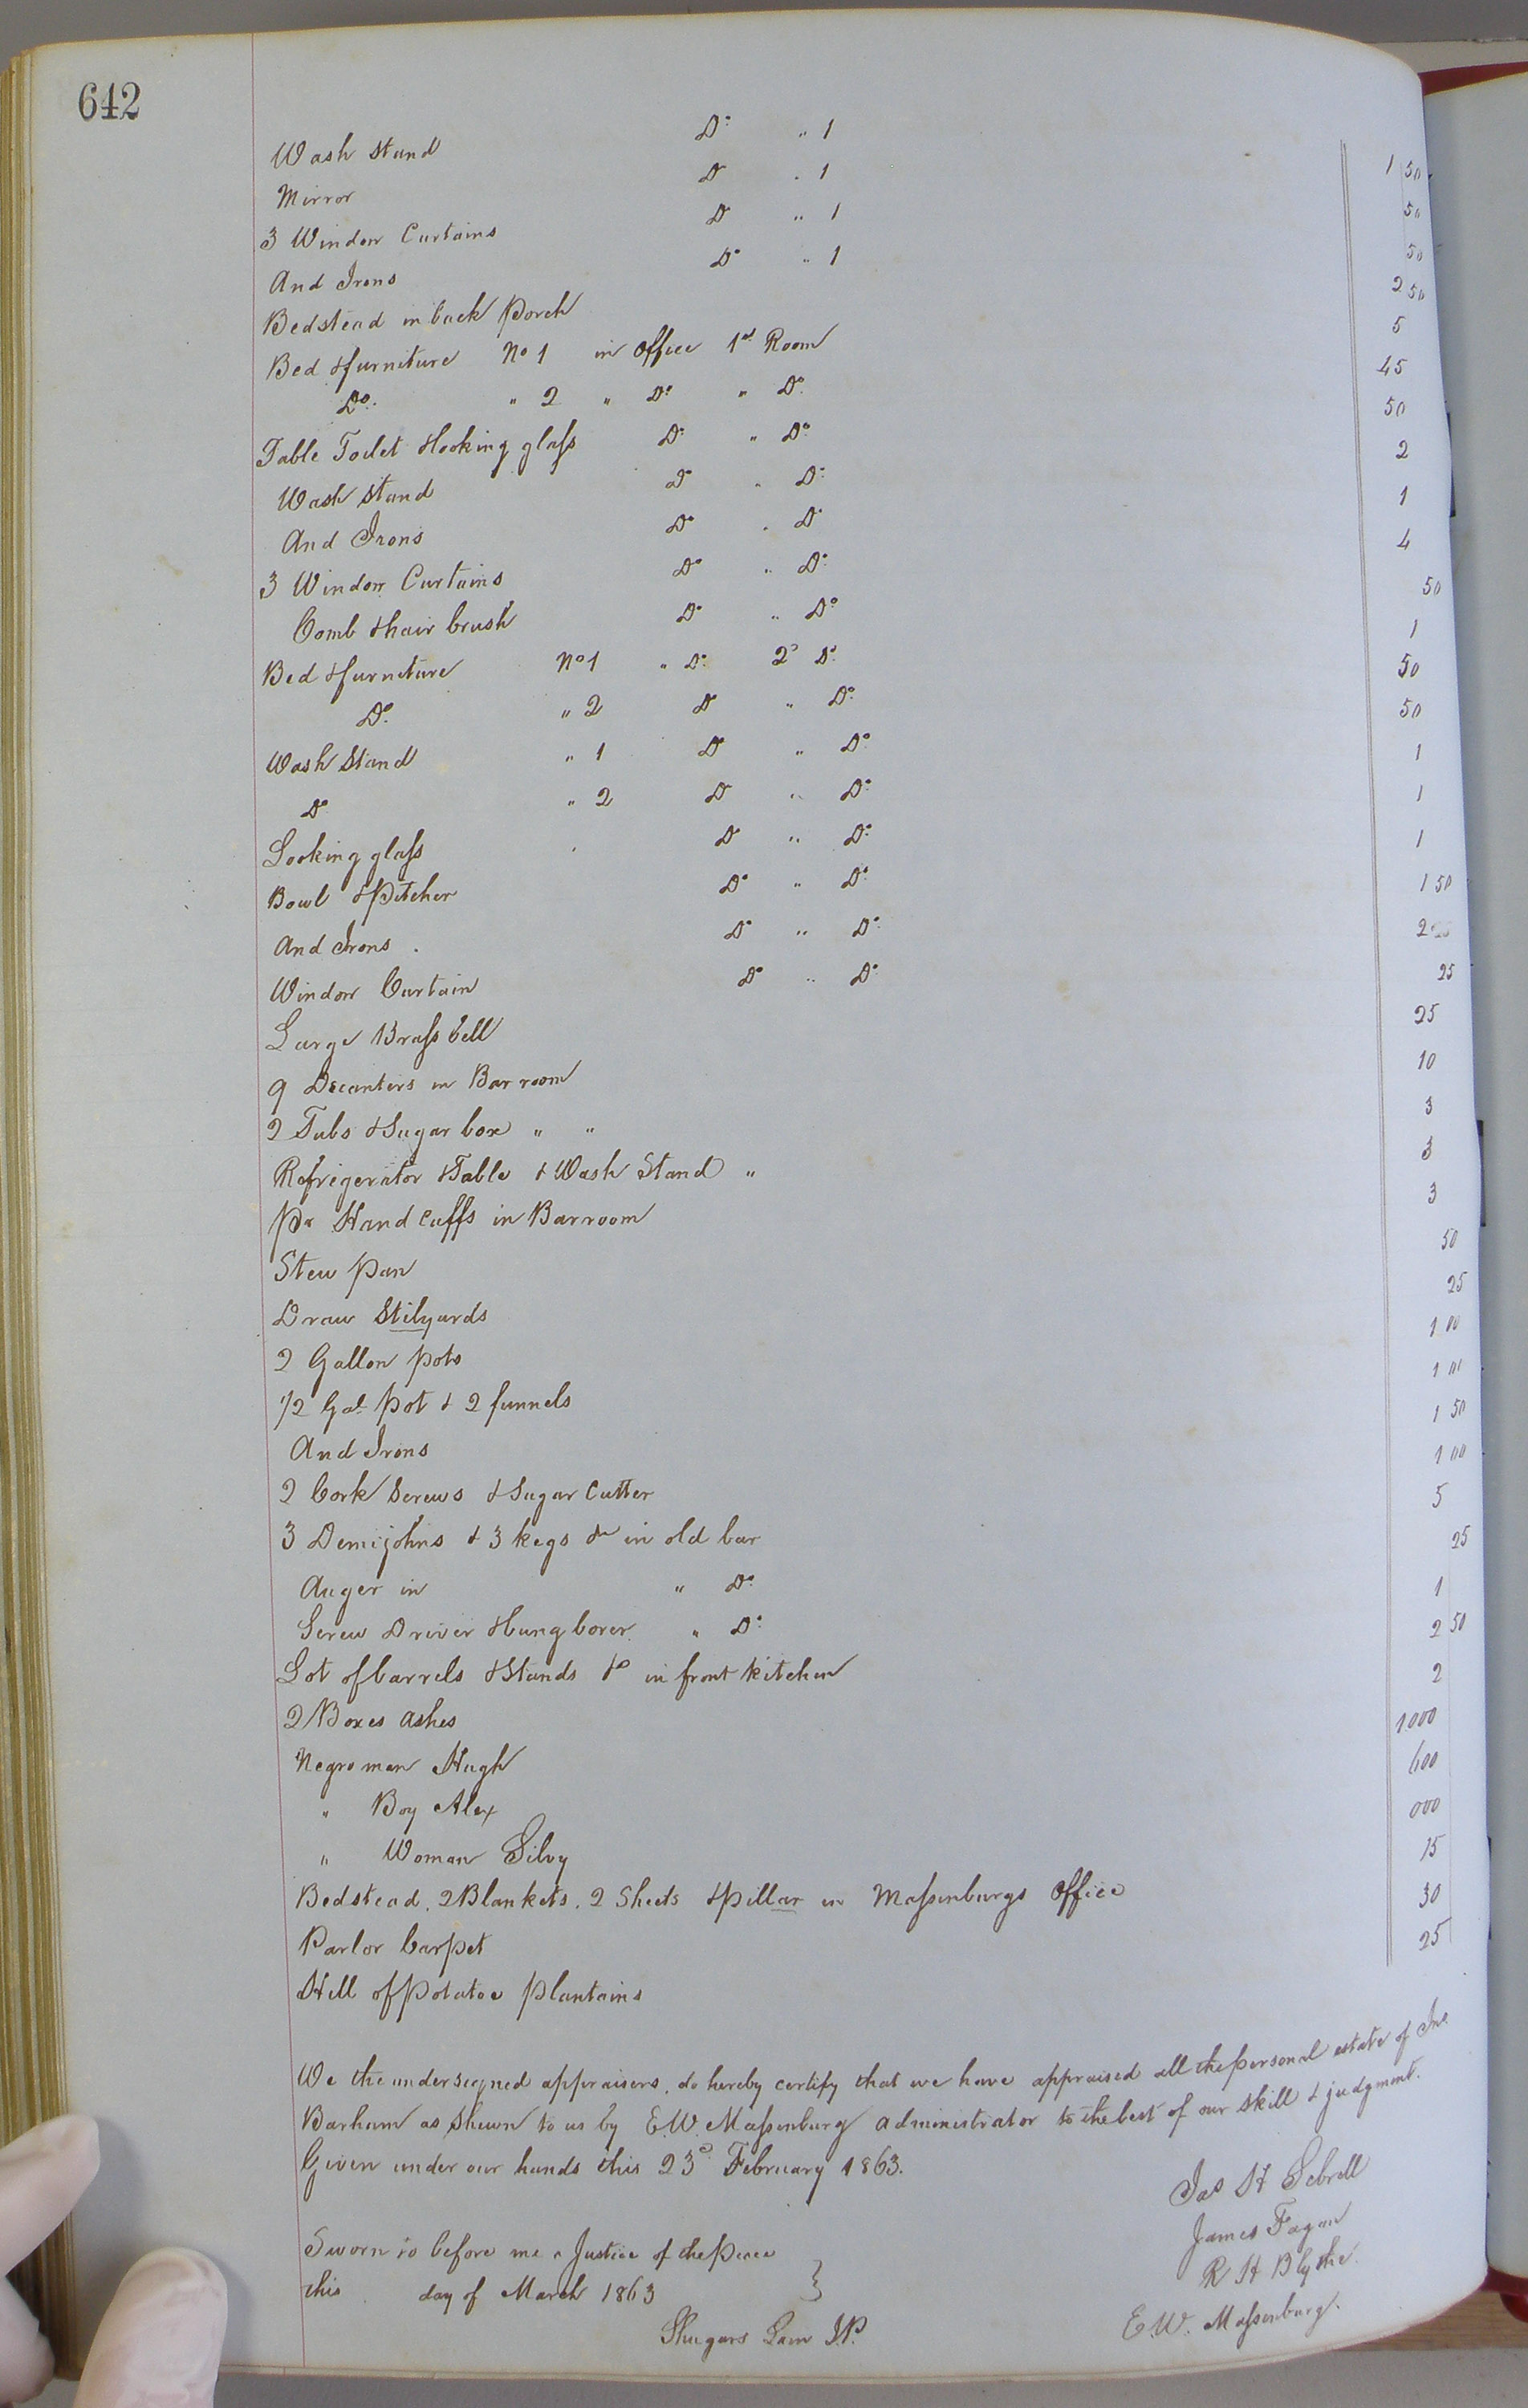 642
Wash Stand D° " 1 1 50
Mirror D° " 1 50
3 Window Curtains D° " 1 50
And Irons D° " 1 2 50
Bedstead in back porch 5
Bed & furniture No 1 in office 1st Room 45
Do. " 2 " D° " D° 50
Table Toilet & looking glass D° " D° 2
Wash stand D° " D° 1
And Irons D° " D° 4
3 Window Curtains D° " D° 50
Comb & hair brush D° " D° 1
Bed & furniture No 1 " D° 2d D° 50
Do. " 2 D° " D° 50
Wash Stand " 1 D° " D° 1
D° " 2 D° " D° 1
Looking glass D° " D° 1
Bowl & Pitcher D° " D° 1 50
And Irons D° " D° 2
Window Curtain D° " D° 25
Large Brass bell 25
9 Decanters in Bar room 10
2 Tubs & Sugar box " " 3
Refrigerator & Table & Wash Stand " 3
pr Hand cuffs in Barroom 3
Stew pan 50
Draw Stilyards 25
2 Gallon pots 1 00
1/2 Gal pot & 2 funnels 1 00
And Irons 1 50
2 Cork Screws & Sugar Cutter 1 00
3 Demijohns & 3 kegs &c in old bar 5
Auger in " D° 25
Screw Driver & bung borer " D° 1
Lot of barrels & Stands &c in front kitchen 2 50
2 Boxes ashes 2
Negro man Hugh 1000
" Boy Alex 600
" Woman Silvy 000
Bedstead, 2 Blankets, 2 Sheets & pillar in Massenburgs office 15
Parlor Carpet 30
Hill of potatoe plantains 25
We the undersigned appraisers, do hereby certify that we have appraised all the personal estate of Jno
Barham as shewn to us by E.W. Massenburg administrator to the best of our skill & judgment.
Given under our hands this 23d February 1863.
Jas H Sebrell
James Fagan
R H Blythe
Sworn to before me a Justice of the peace
this day of March 1863
E.W. Massenburg.
Shugars Lain J.P.